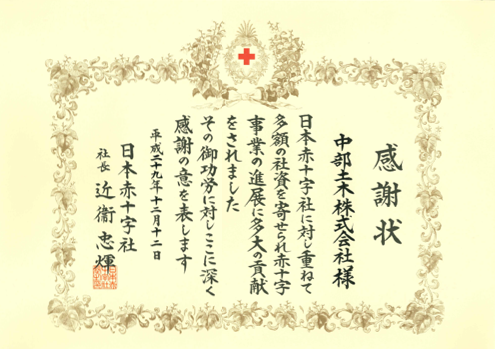 感謝状
中部土木株式会社様
日本赤十字社に対し重ねて
多額の社資を寄せられ赤十字
事業の進展に多大の貢献
をされました
その御功労に対しここに深く
感謝の意を表します
平成二十九年十二月十二日
日本赤十字社
社長 近衞忠煇